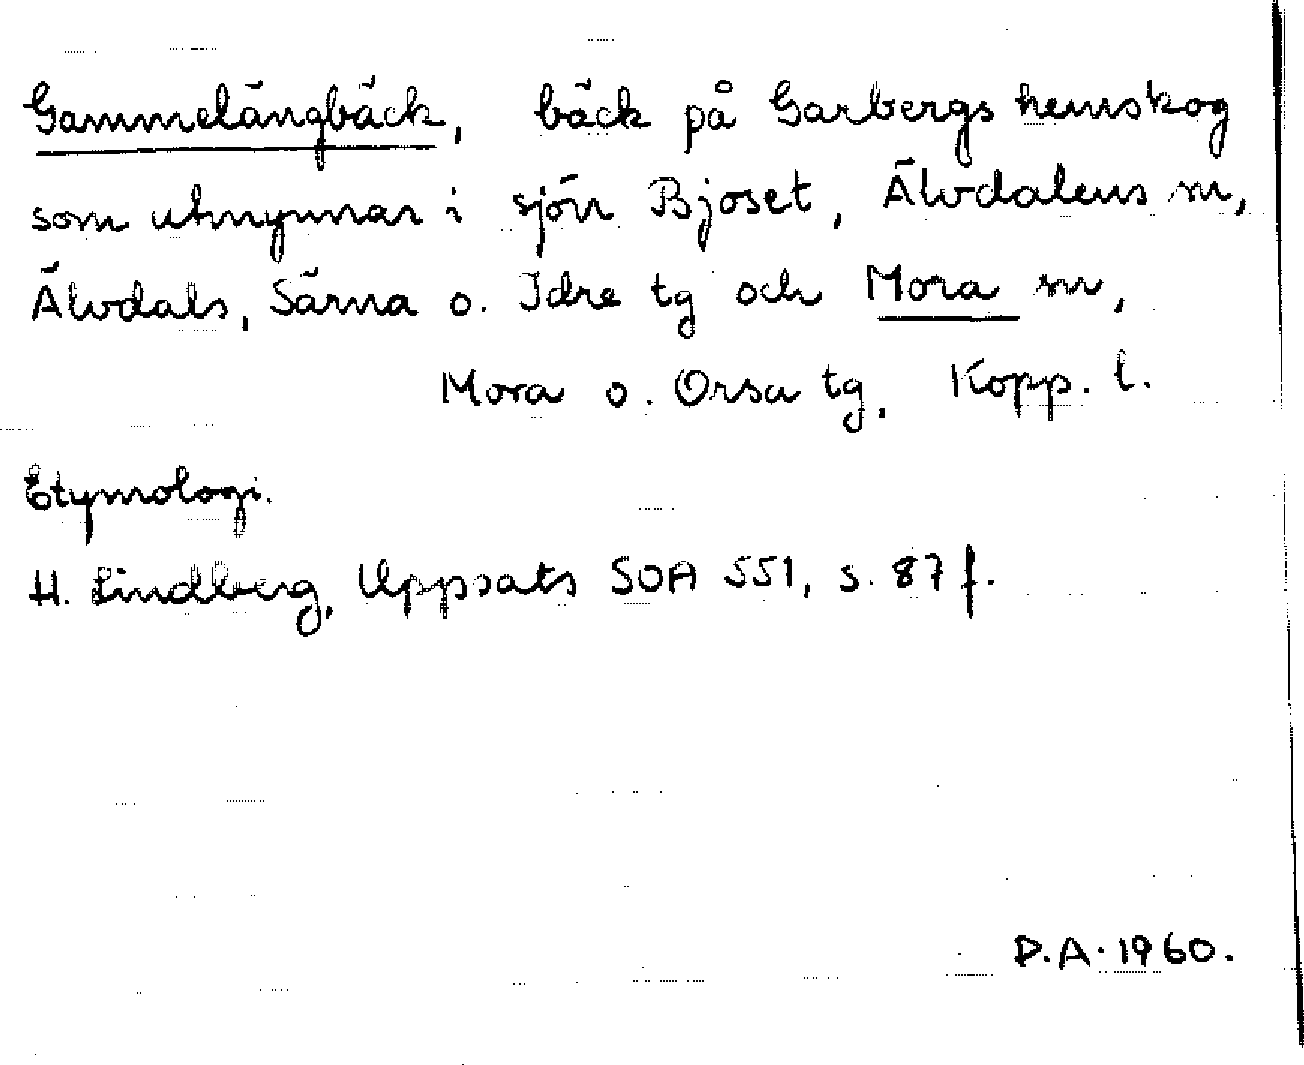 Gammelängbäck, bäck på Garbergs hemskog
som utmynnar i sjön Bjoset, Älvdalens sn,
Älvdals, Särna o. Idre tg och Mora sn,
Mora o. Orsa tg. Kopp. l.
Etymologi.
H. Lindberg, Uppsats SOA 551, s. 87 f.
D.A. 1960.